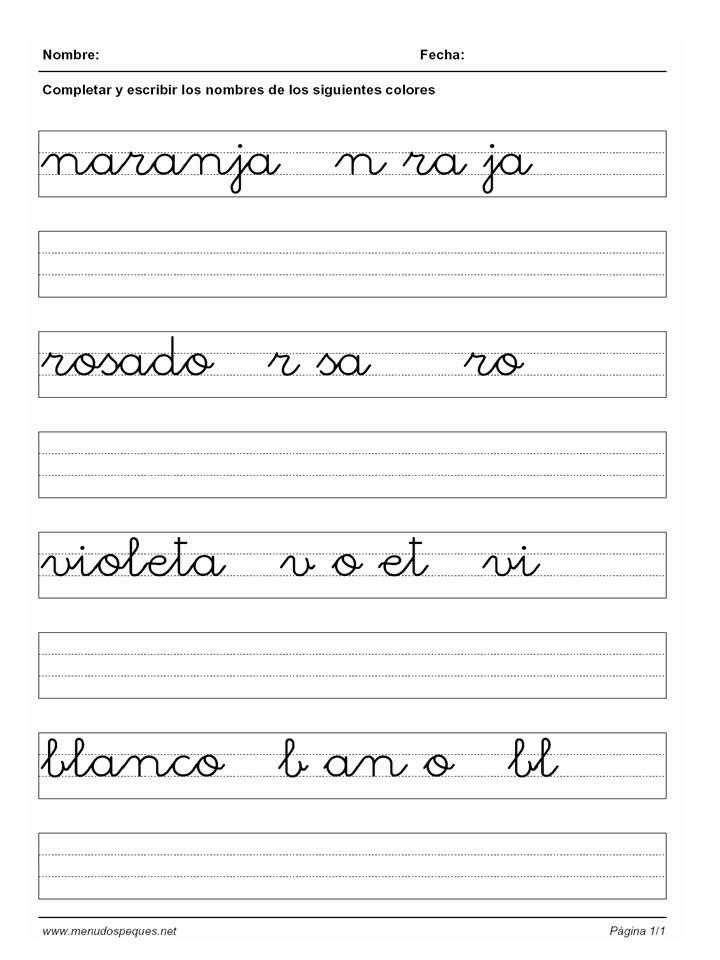 Nombre: Fecha:
Completar y escribir los nombres de los siguientes colores
naranja n ra ja
rosado r sa ro
violeta v o et vi
blanco b an o bl
www.menudospeques.net Página 1/1